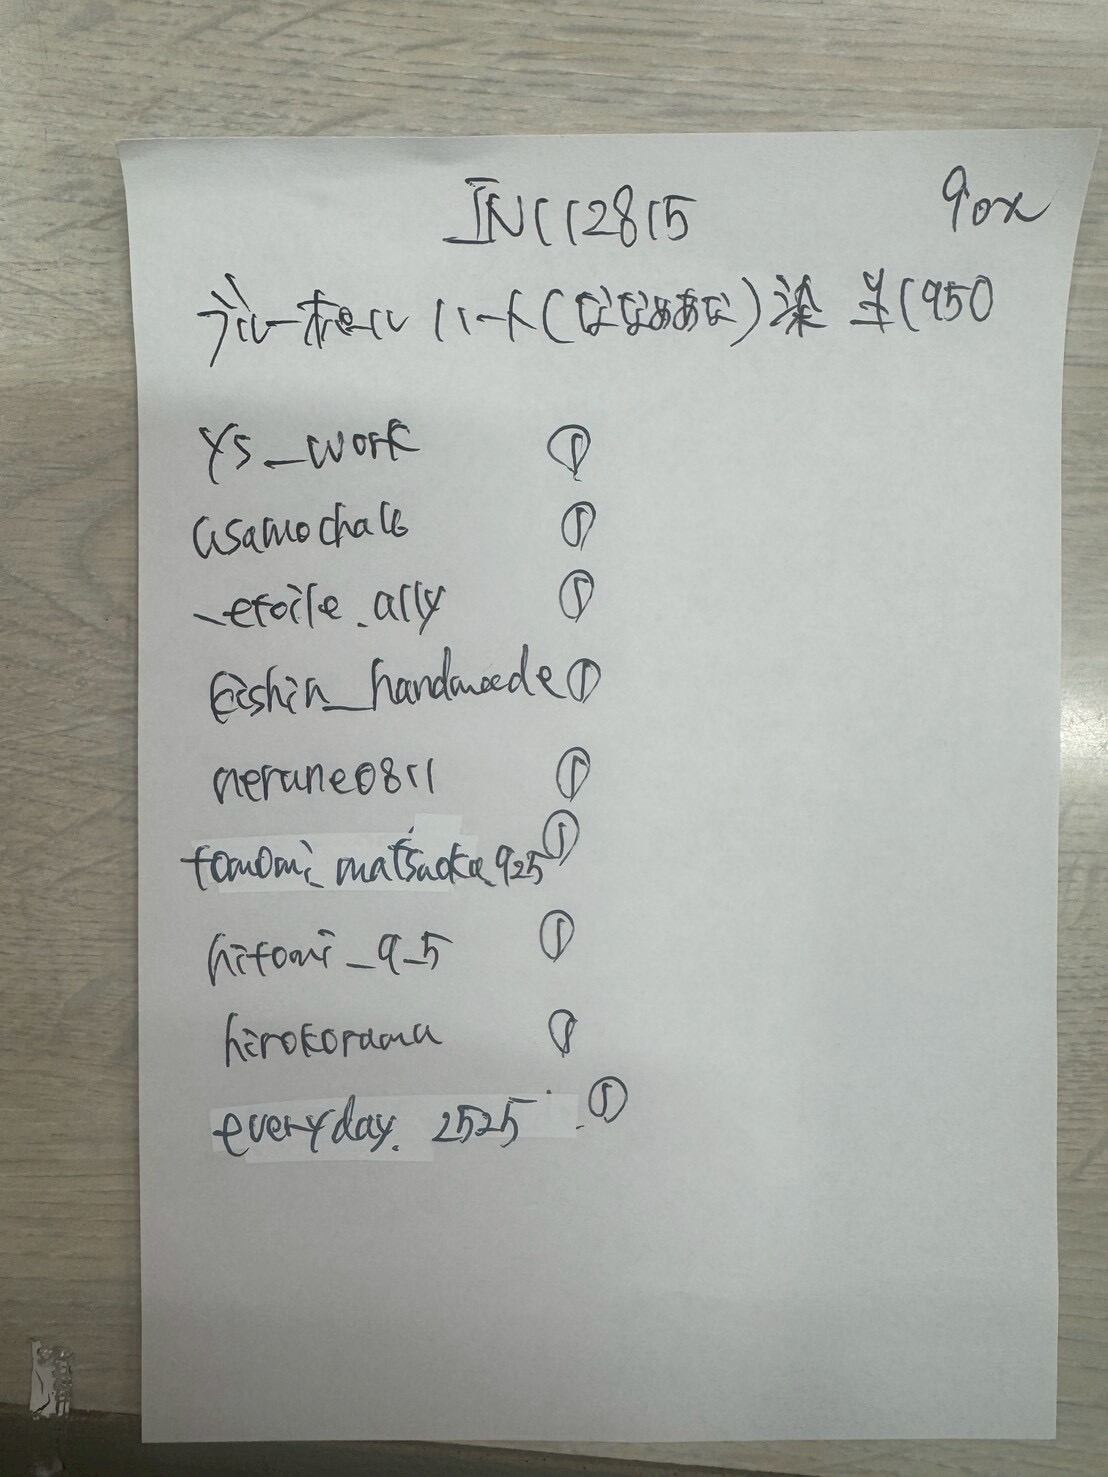 JN112815 9ox
ブルーホールハート(ななめあな)染 半1950
ys_work ①
asamochale ①
_etoile.ally ①
Eishin_handmade ①
nerune0811 ①
tomomi_matsuoka.925 ①
hitomi_9_5 ①
hirokorama ①
everyday.2525 ①